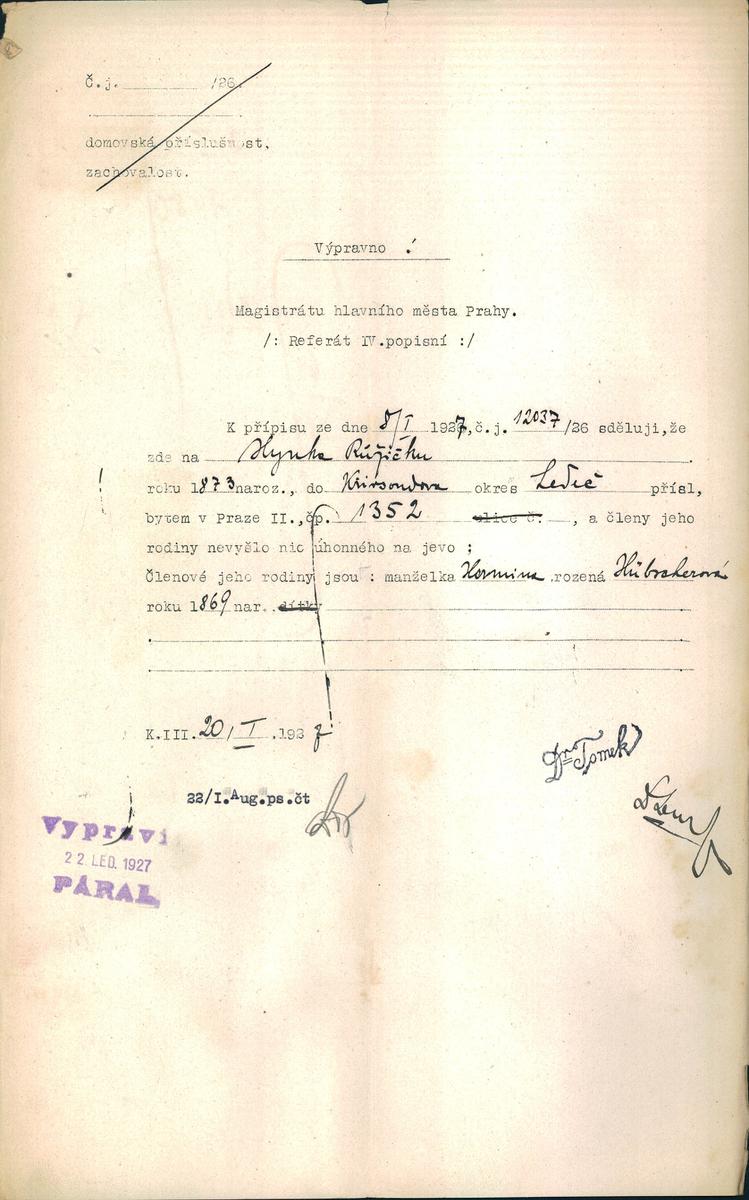 Č.j. /26.
domovská příslušnost,
zachovalost.
Výpravno !
Magistrátu hlavního města Prahy.
/: Referát IV.popisní :/
K přípisu ze dne 8/I 1927, č.j. 12037/26 sděluji,že
zde na Hynka Růžičku
roku 1873 naroz., do okres Ledeč přísl,
bytem v Praze II.,čp. 1352 ulice č. , a členy jeho
rodiny nevyšlo nic úhonného na jevo ;
Členové jeho rodiny jsou : manželka Hermina rozená Hübscherová
roku 1869 nar. dítky
K.III. 20/I .1927
!
Dr Tomek
22/I.Aug.ps.čt
Vypraví
22. LED. 1927
PÁRAL